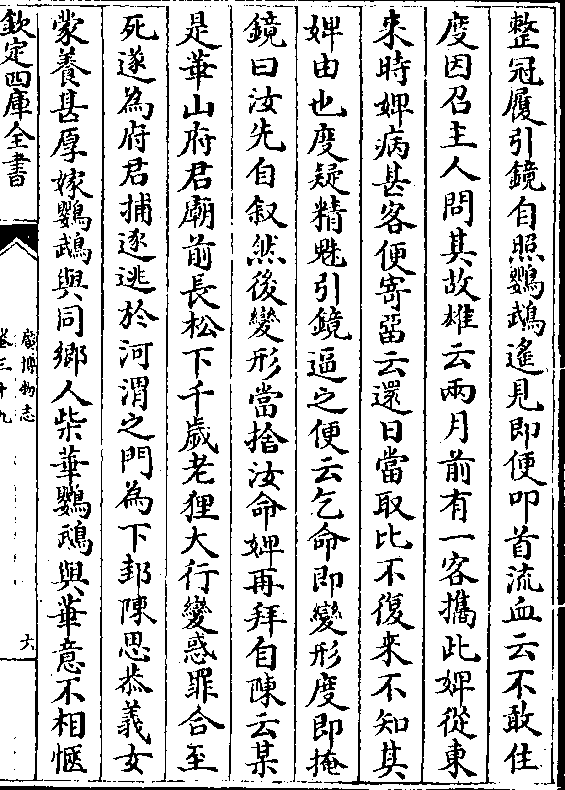 整冠履引鏡自照鸚鵡遙見即便叩首流血云不敢住
度因召主人問其故雄云兩月前有一客攜此婢從東
來時婢病甚客便寄留云還日當取比不復來不知其
婢由也度疑精魅引鏡逼之便云乞命即變形度即掩
鏡曰汝先自叙然後變形當捨汝命婢再拜自陳云某
是華山府君廟前長松下千歲老狸大行變惑罪合至
死遂為府君捕逐逃於河渭之間為下邽陳思恭義女
蒙養甚厚嫁鸚鵡與同鄉人柴華鸚鵡與華意不相愜
欽定四庫全書
廣博物志
卷三十九
六